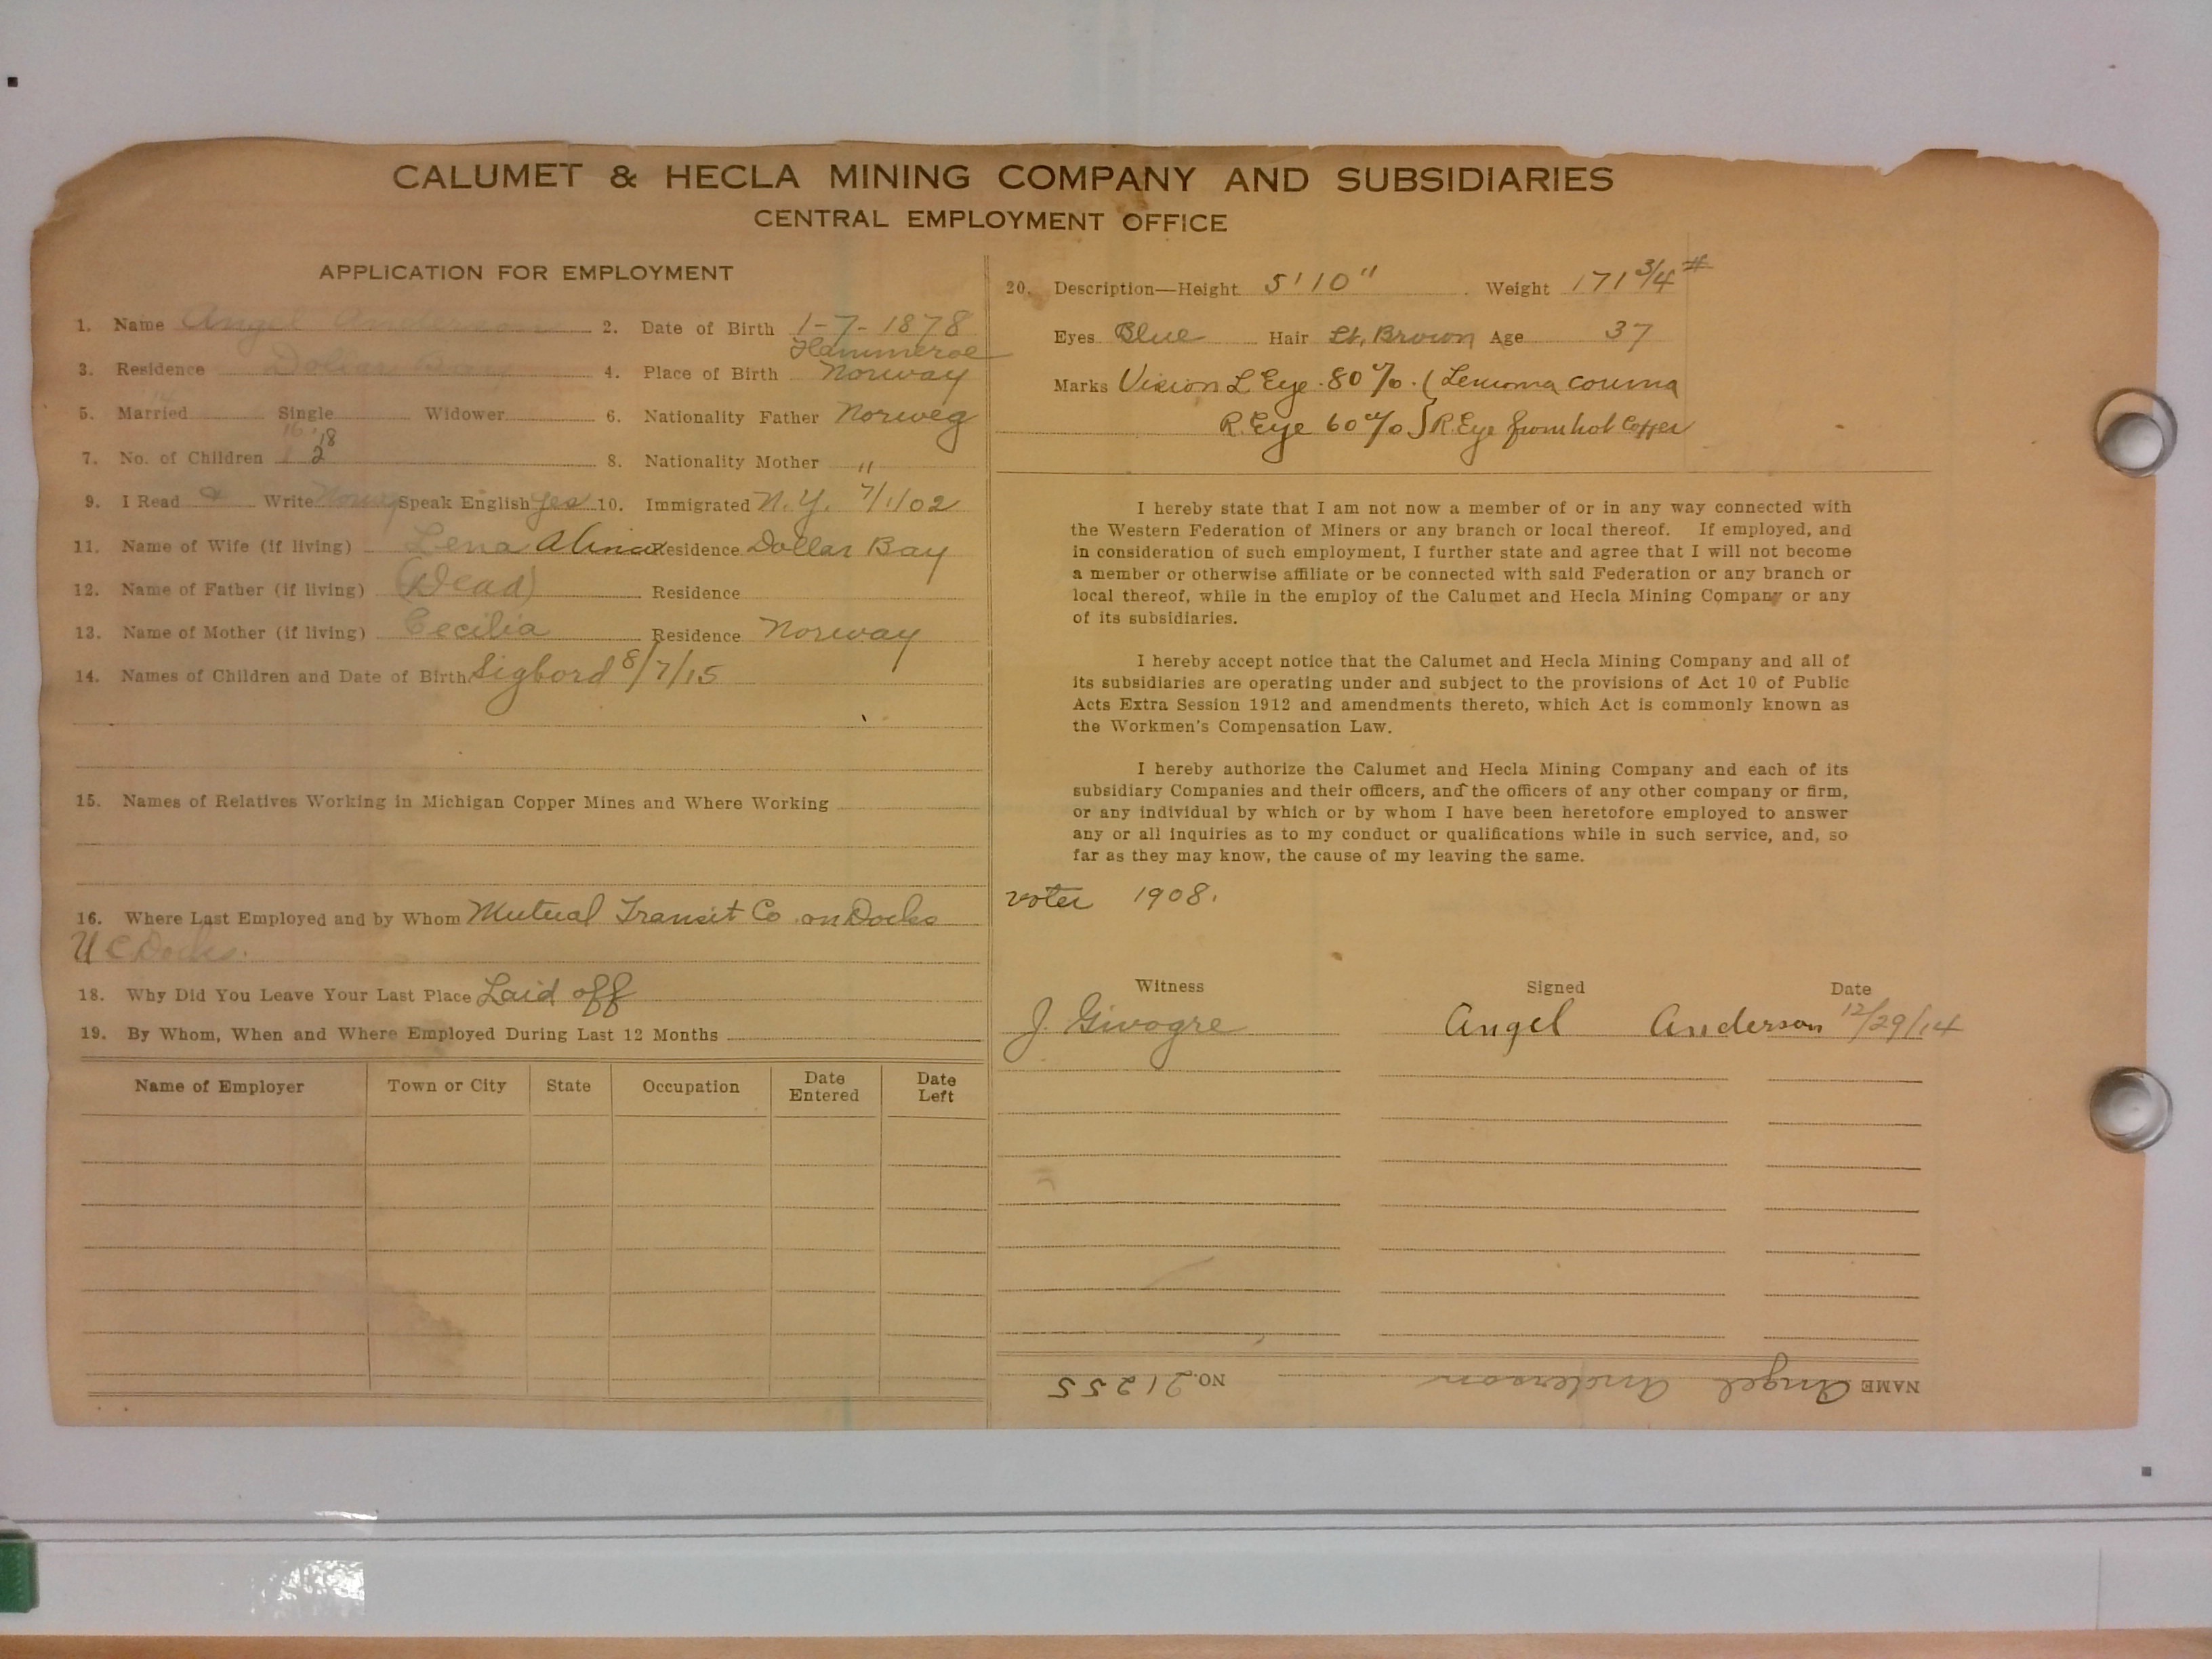 CALUMET & HECLA MINING COMPANY AND SUBSIDIARIES
CENTRAL EMPLOYMENT OFFICE
APPLICATION FOR EMPLOYMENT
1. Name Angel Anderson 2. Date of Birth 1-7-1878
Hammeroe
3. Residence Dollar Bay 4. Place of Birth Norway
5. Married 14 Single Widower 6. Nationality Father Norweg
16 18
7. No. of Children 1 2 8. Nationality Mother "
9. I Read & Write Norweg Speak English yes 10. Immigrated N.Y. 7/1/02
11. Name of Wife (if living) Lena Alina Residence Dollar Bay
12. Name of Father (if living) (Dead) Residence
13. Name of Mother (if living) Cecilia Residence Norway
14. Names of Children and Date of Birth Sigbord 8/7/15
15. Names of Relatives Working in Michigan Copper Mines and Where Working
16. Where Last Employed and by Whom Mutual Transit Co. on Docks
U C Docks.
18. Why Did You Leave Your Last Place Laid off
19. By Whom, When and Where Employed During Last 12 Months
Name of Employer Town or City State Occupation Date Entered Date Left
20. Description—Height 5'10" Weight 171 3/4 #
Eyes Blue Hair Lt. Brown Age 37
Marks Vision L Eye 80% (
R. Eye 60% } R. Eye from hot Copper
I hereby state that I am not now a member of or in any way connected with
the Western Federation of Miners or any branch or local thereof. If employed, and
in consideration of such employment, I further state and agree that I will not become
a member or otherwise affiliate or be connected with said Federation or any branch or
local thereof, while in the employ of the Calumet and Hecla Mining Company or any
of its subsidiaries.
I hereby accept notice that the Calumet and Hecla Mining Company and all of
its subsidiaries are operating under and subject to the provisions of Act 10 of Public
Acts Extra Session 1912 and amendments thereto, which Act is commonly known as
the Workmen's Compensation Law.
I hereby authorize the Calumet and Hecla Mining Company and each of its
subsidiary Companies and their officers, and the officers of any other company or firm,
or any individual by which or by whom I have been heretofore employed to answer
any or all inquiries as to my conduct or qualifications while in such service, and, so
far as they may know, the cause of my leaving the same.
voter 1908.
Witness Signed Date
J. Givogre Angel Anderson 12/29/14
NAME Angel Anderson NO. 21255